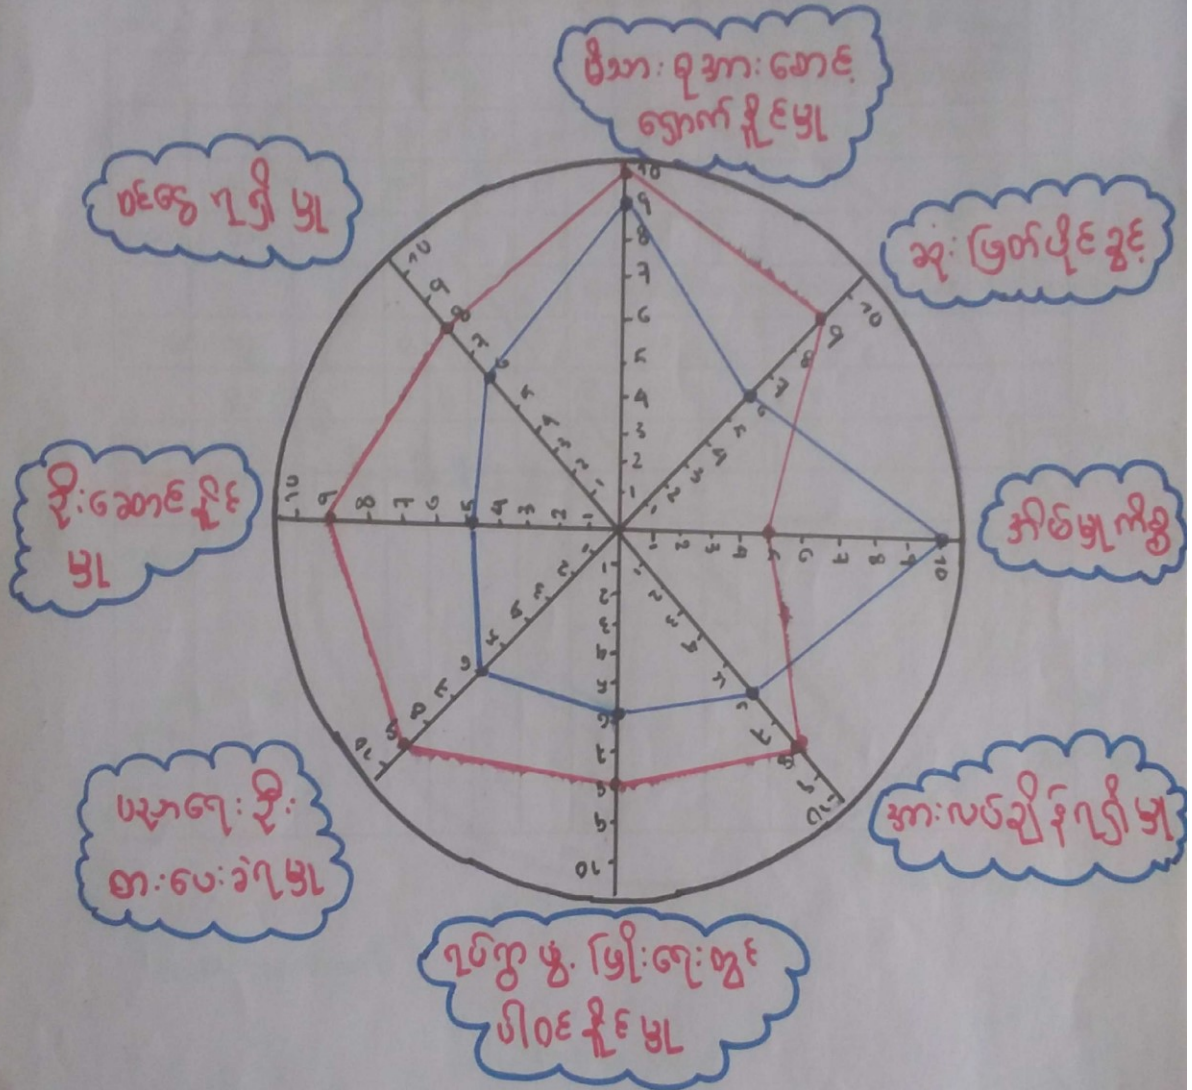 မိသားစုအားစောင့်
ရှောက်နိုင်မှု
ဆုံးဖြတ်ပိုင်ခွင့်
အိမ်မှုကိစ္စ
အားလပ်ချိန်ရရှိမှု
ရပ်ရွာဖွံ့ဖြိုးရေးတွင်
ပါဝင်နိုင်မှု
ပညာရေးဦး
စားပေးခံရမှု
ဦးဆောင်နိုင်
မှု
ဝင်ငွေရရှိမှု
10
9
8
7
6
5
4
3
2
1
10
9
8
7
6
5
4
3
2
1
1
2
3
4
5
6
7
8
9
10
1
2
3
4
5
6
7
8
9
10
1
2
3
4
5
6
7
8
9
10
1
2
3
4
5
6
7
8
9
10
10
9
8
7
6
5
4
3
2
1
10
9
8
7
6
5
4
3
2
1